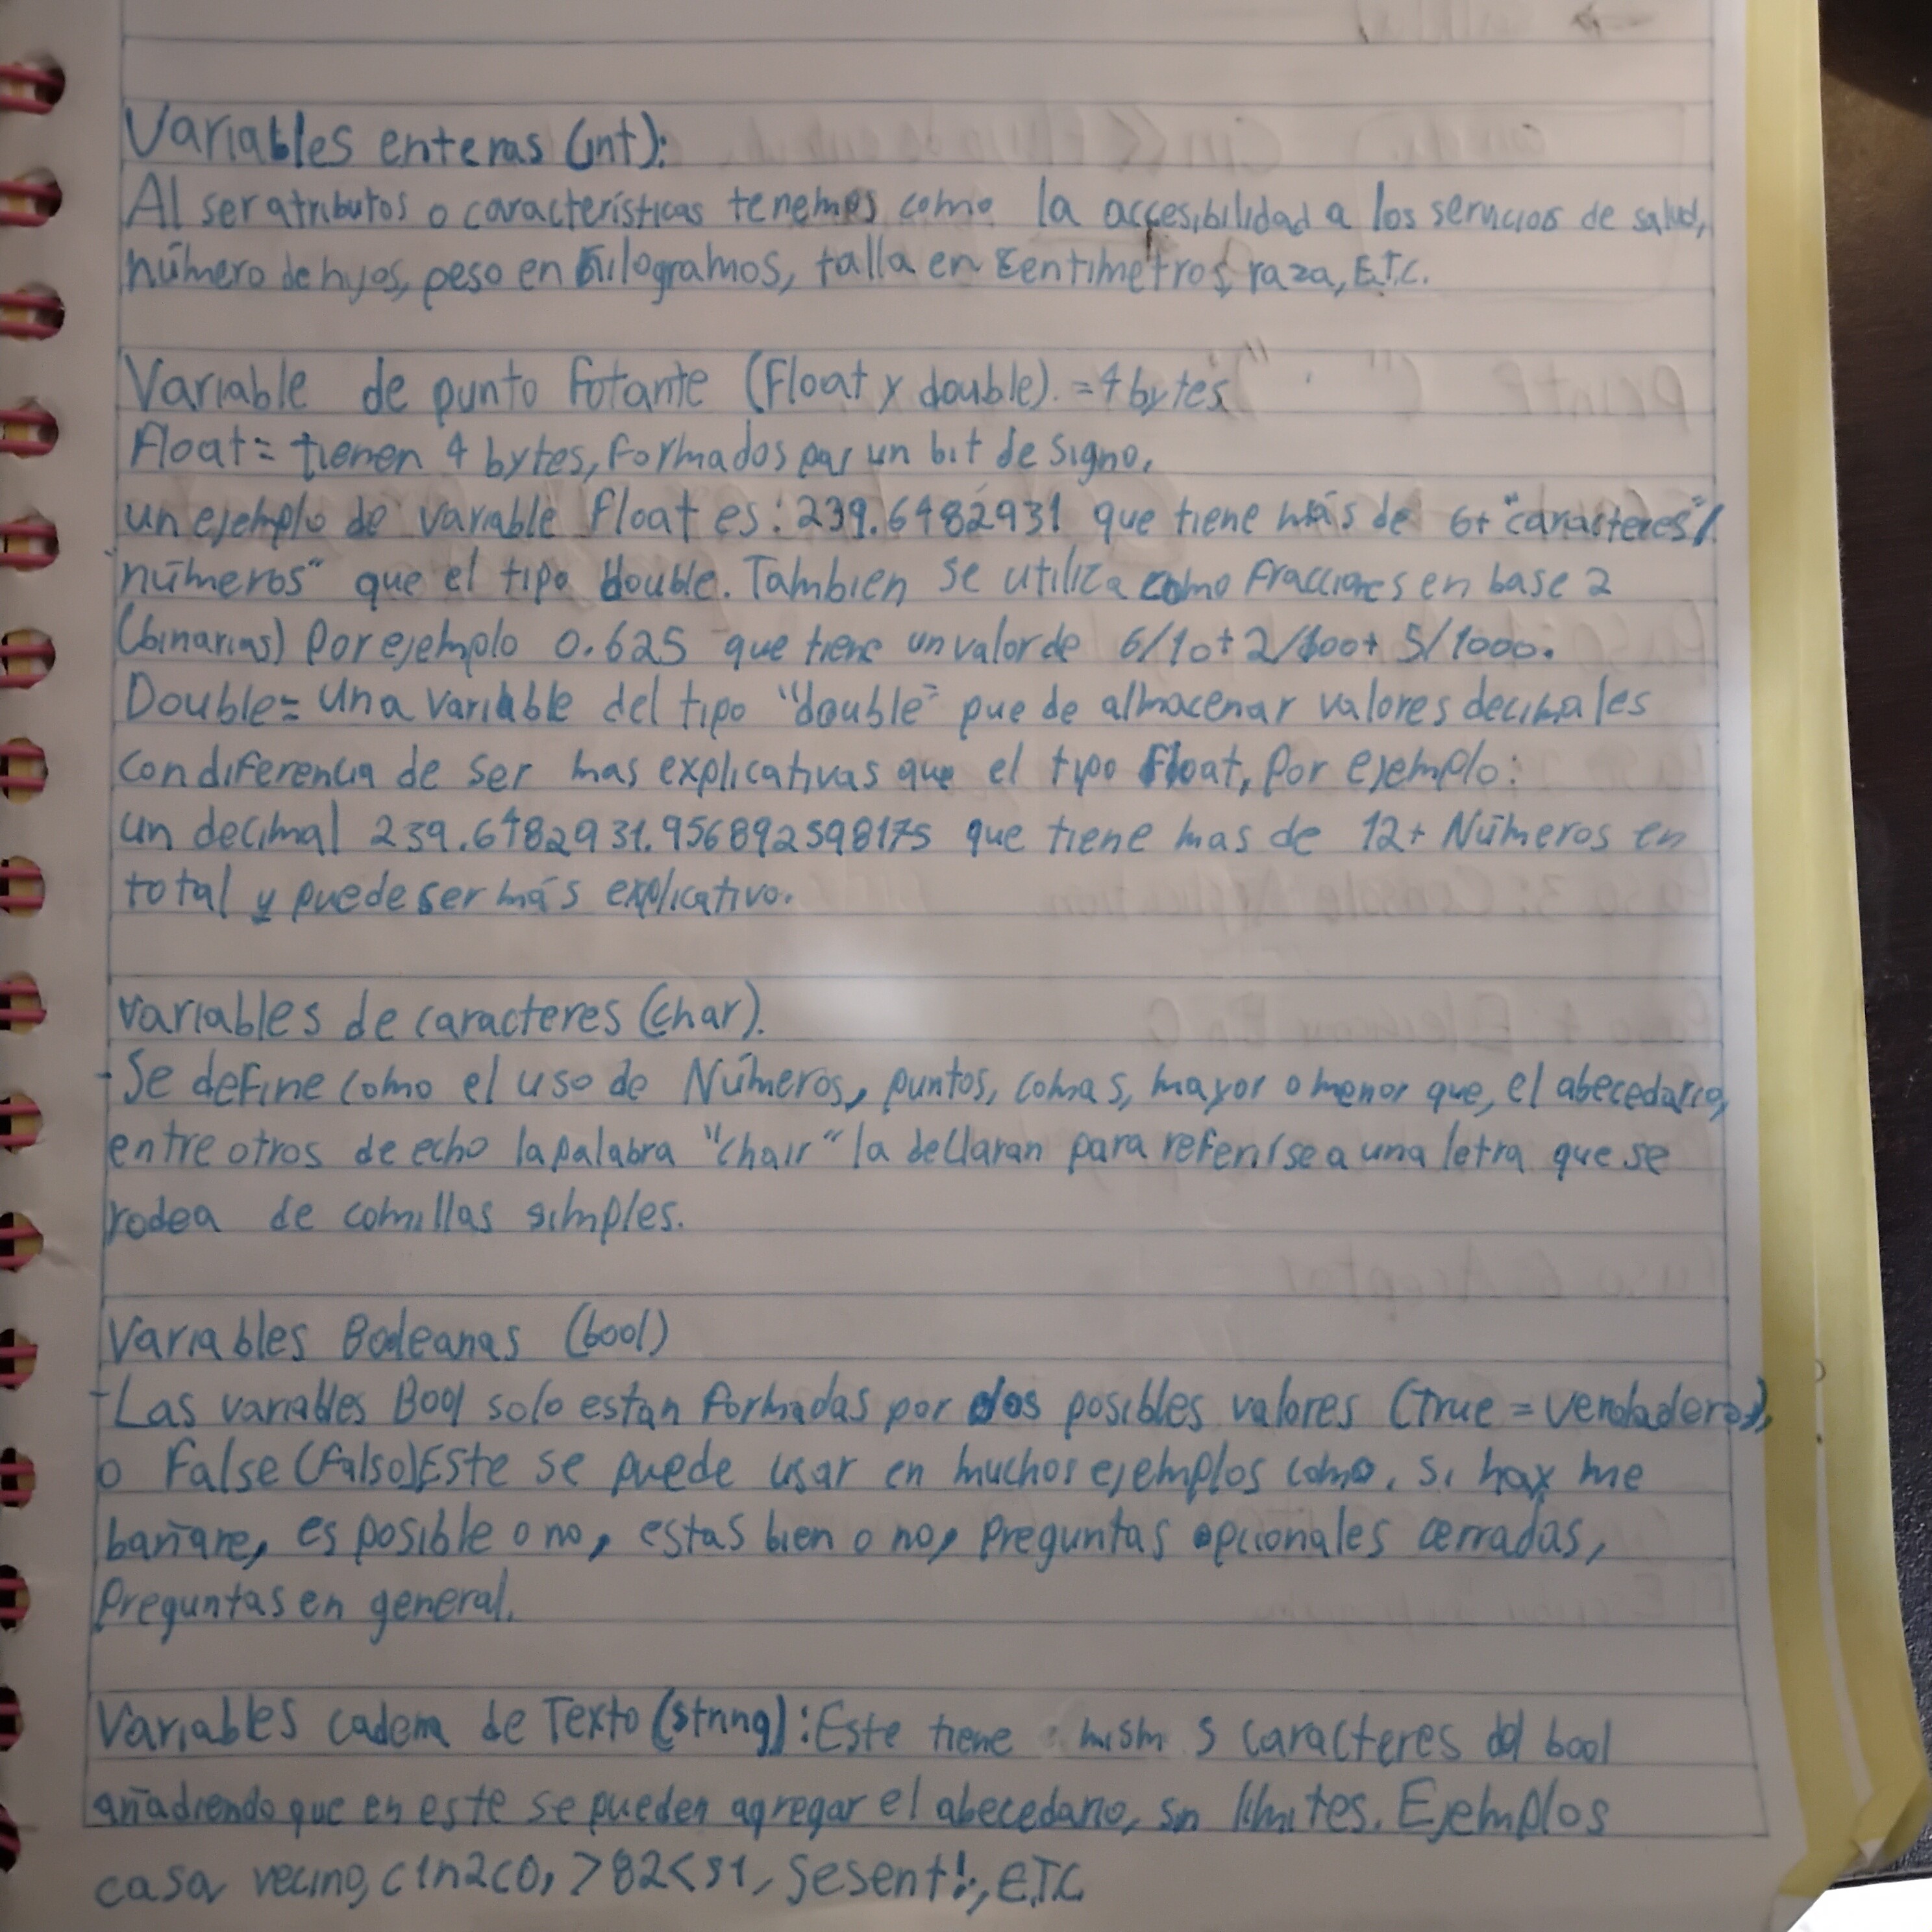 Variables enteras (int):
Al ser atributos o características tenemos como la accesibilidad a los servicios de salud,
número de hijos, peso en kilogramos, talla en centímetros, raza, E.T.C.
Variable de punto fotante (Float y double). = 4 bytes
Float = tienen 4 bytes, formados por un bit de signo,
un ejemplo de variable float es: 239.6482931 que tiene más de 6+ "caracteres"/
números" que el tipo double. Tambien se utiliza como fracciones en base 2
(binarias) Por ejemplo 0.625 que tiene un valor de 6/10+2/100+5/1000.
Double = Una variable del tipo "double" puede almacenar valores decimales
con diferencia de ser mas explicativas que el tipo float, por ejemplo:
un decimal 239.6482931.956892598175 que tiene mas de 12+ Números en
total y puede ser más explicativo.
Variables de caracteres (char).
-Se define como el uso de Números, puntos, comas, mayor o menor que, el abecedario,
entre otros de echo la palabra "chair" la declaran para referirse a una letra que se
rodea de comillas simples.
Variables Booleanas (bool)
-Las variables Bool solo estan formadas por dos posibles valores (true = verdadero),
o False (falso) Este se puede usar en muchos ejemplos como, si hoy me
bañare, es posible o no, estas bien o no, preguntas opcionales cerradas,
preguntas en general.
Variables cadena de Texto (string): Este tiene caracteres del bool
añadiendo que en este se pueden agregar el abecedario, sin límites. Ejemplos
casa, vecino, c1n2c0, >82<31, sesent!, E.T.C